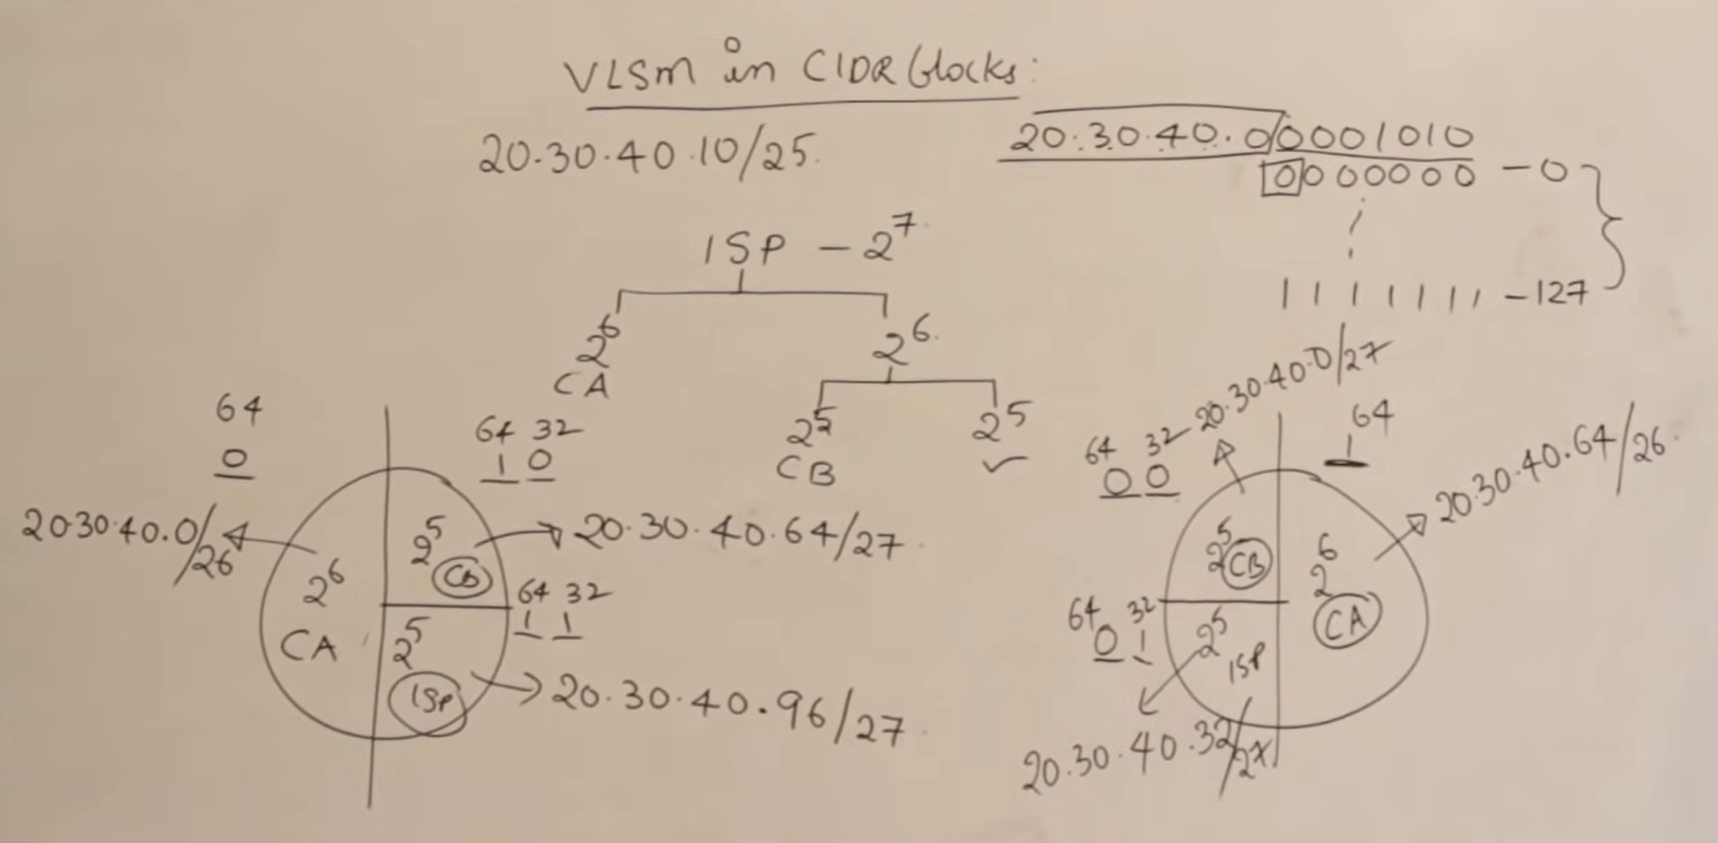 VLSM in CIDR blocks:
20.30.40.10/25.
20.30.40.00001010
0000000 - 0
1111111 - 127
ISP - 2^7
2^6
CA
2^6
2^5
CB
2^5
✓
64
0
20.30.40.0/26
2^6
CA
64 32
1 0
2^5
CB
20.30.40.64/27
64 32
1 1
2^5
ISP
20.30.40.96/27
64 32
0 0
20.30.40.0/27
2^5
CB
64
1
20.30.40.64/26
2^6
CA
64 32
0 1
2^5
ISP
20.30.40.32/27